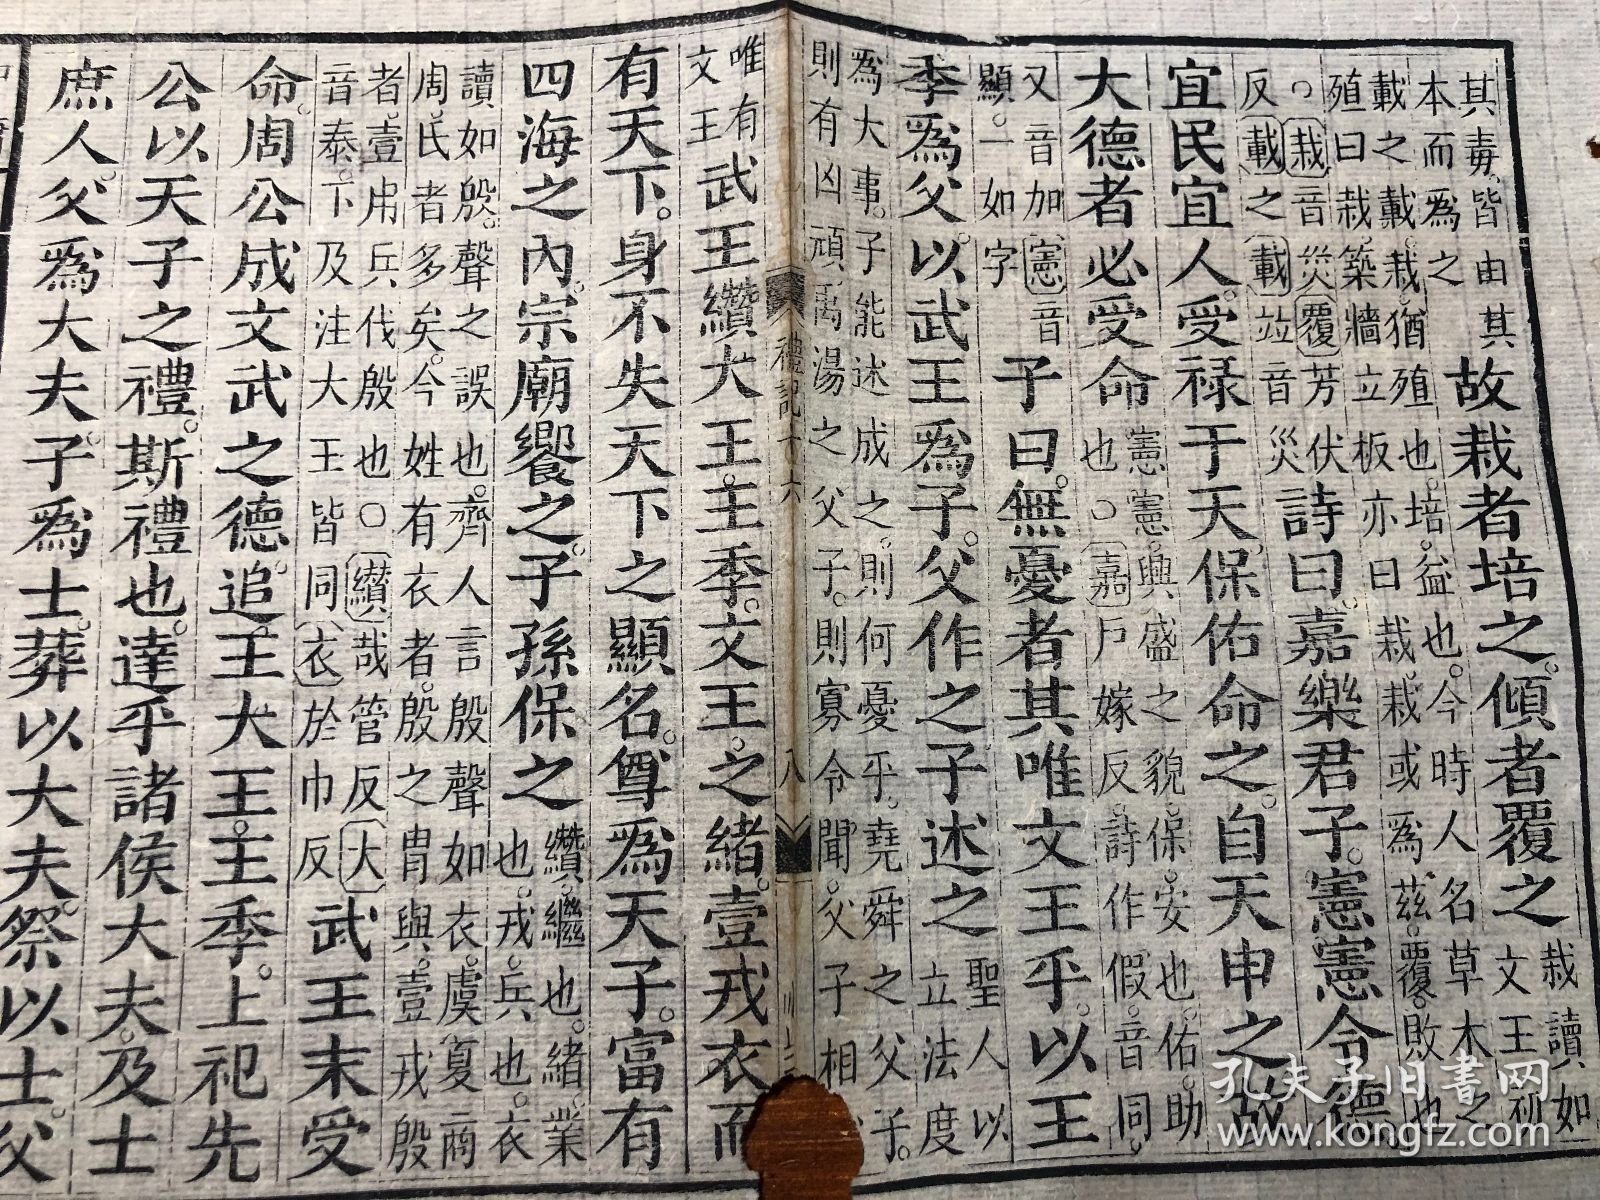 其毒皆由其
本而爲之
故栽者培之傾者覆之
栽讀如
文王初
載之載栽猶殖也培益也今時人名草木之
殖曰栽築牆立板亦曰栽栽或爲茲覆敗也
〇栽音災覆芳伏
反載之載竝音災
詩曰嘉樂君子憲憲令德
宜民宜人受祿于天保佑命之自天申之故
大德者必受命
憲憲興盛之貌保安也佑助
也〇嘉戶嫁反詩作假音同
又音加憲音
顯一如字
子曰無憂者其唯文王乎以王
季爲父以武王爲子父作之子述之
聖人以
立法度
爲大事子能述成之則何憂乎堯舜之父子
則有凶頑禹湯之父子則寡令聞父子相
禮記十六
八
唯有
文王
武王纘大王王季文王之緒壹戎衣而
有天下身不失天下之顯名尊爲天子富有
四海之內宗廟饗之子孫保之
纘繼也緒業
也戎兵也衣
讀如殷聲之誤也齊人言殷聲如衣虞夏商
周氏者多矣今姓有衣者殷之冑與壹戎殷
者壹用兵伐殷也〇纘哉管反大
音泰下及注大王皆同衣於巾反
武王末受
命周公成文武之德追王大王王季上祀先
公以天子之禮斯禮也達乎諸侯大夫及士
庶人父爲大夫子爲士葬以大夫祭以士父
孔夫子旧书网
www.kongfz.com